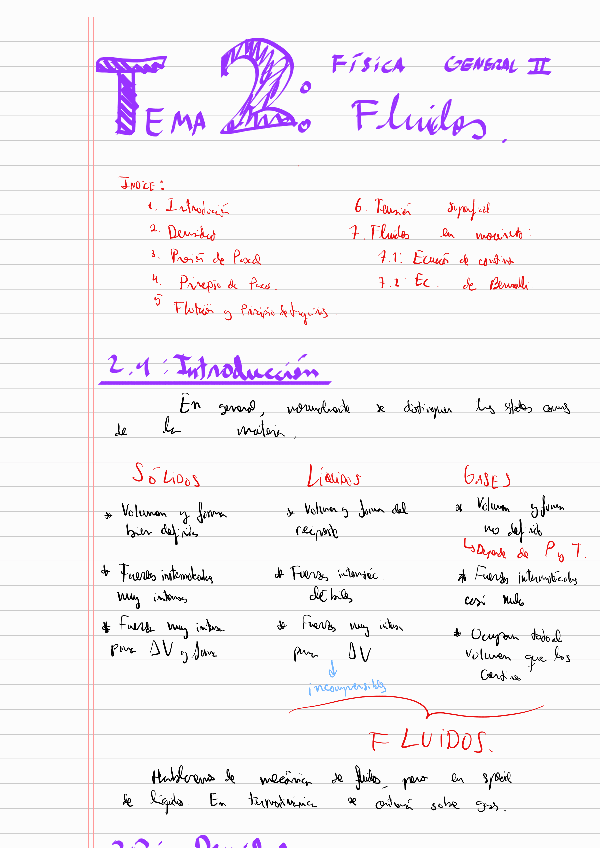 TEMA 2:
FÍSICA GENERAL II
Fluidos.
ÍNDICE:
1. Introducción
2. Densidad
3. Presión de Pascal
4. Principio de Pasc.
5 Flotación y Principio de Arquíms.
6. Tensión superficial
7. Fluidos en movimiento:
7.1: Ecuación de contin
7.2: Ec. de Bernoulli
2.1: Introducción
En general, normalmente se distinguen los estados
de la materia.
SÓLIDOS
* Volumen y forma
bien definidos
* Fuerzas intermoleculares
muy intensas
* Fuerza muy intensa
para ΔV y forma
LÍQUIDOS
* Volumen y forma del
recipiente
* Fuerzas
débiles
* Fuerzas muy intensa
para ΔV
↓
incompresibles
GASES
* Volumen y forma
no definido
↳ Depende de P y T.
* Fuerzas intermoleculares
casi nulas
* Ocupan todo el
volumen que los
contiene
FLUIDOS.
Hablaremos de mecánica de fluidos, pero en especial
de líquidos En termodinámica se sobre gases.